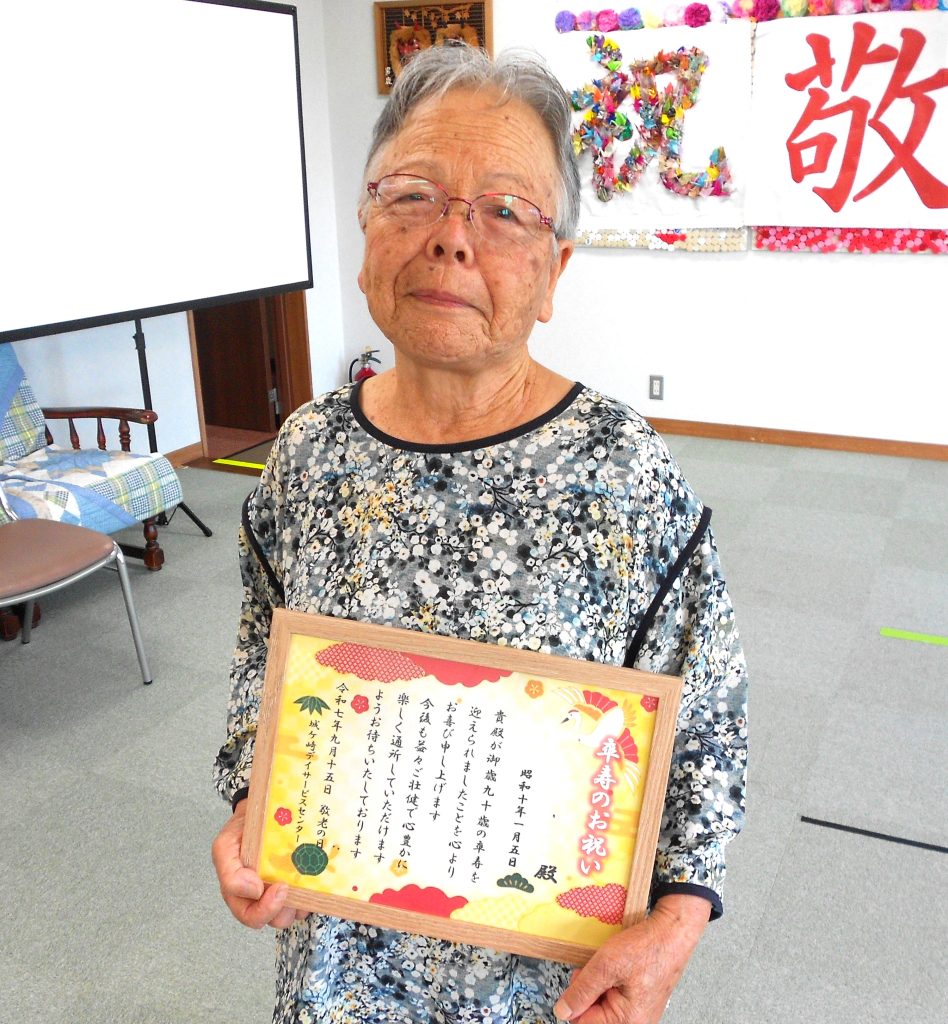 祝
敬
卒寿のお祝い
殿
昭和十年一月五日
貴殿が御歳九十歳の卒寿を
迎えられましたことを心より
お喜び申し上げます
今後も益々ご壮健で心豊かに
楽しく通所していただけます
ようお待ちいたしております
令和七年九月十五日 敬老の日
城ケ崎デイサービスセンター